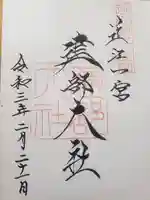 近江一宮
建部大社
令和三年二月二十一日